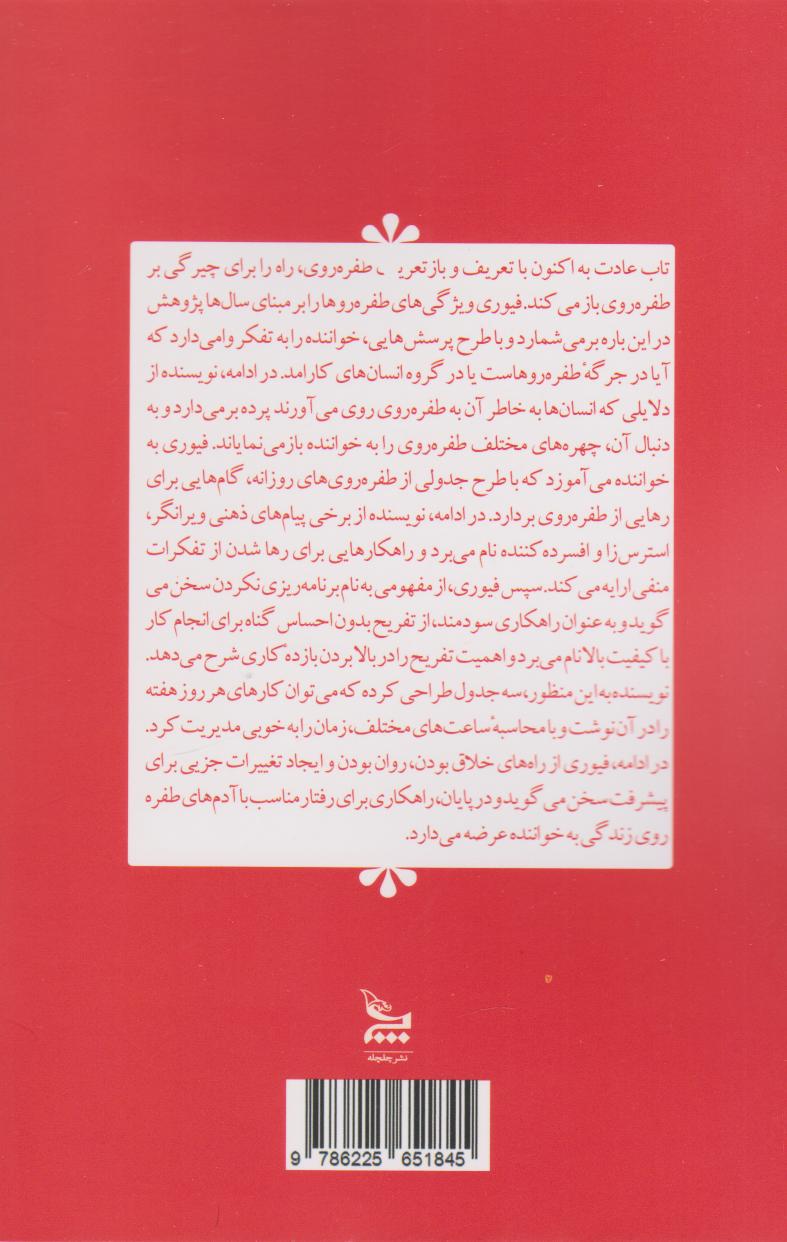 تاب عادت به اکنون با تعریف و باز تعریف طفره‌روی، راه را برای چیرگی بر
طفره‌روی باز می کند. فیوری ویژگی‌های طفره‌روها را بر مبنای سال‌ها پژوهش
در این باره برمی‌شمارد و با طرح پرسش‌هایی، خواننده را به تفکر وامی‌دارد که
آیا در جرگهٔ طفره‌روهاست یا در گروه انسان‌های کارامد. در ادامه، نویسنده از
دلایلی که انسان‌ها به خاطر آن به طفره‌روی روی می‌آورند پرده برمی‌دارد و به
دنبال آن، چهره‌های مختلف طفره‌روی را به خواننده بازمی‌نمایاند. فیوری به
خواننده می‌آموزد که با طرح جدولی از طفره‌روی‌های روزانه، گام‌هایی برای
رهایی از طفره‌روی بردارد. در ادامه، نویسنده از برخی پیام‌های ذهنی ویرانگر،
استرس‌زا و افسرده کننده نام می‌برد و راهکارهایی برای رها شدن از تفکرات
منفی ارایه می کند. سپس فیوری، از مفهومی به نام برنامه‌ریزی نکردن سخن می
گوید و به عنوان راهکاری سودمند، از تفریح بدون احساس گناه برای انجام کار
با کیفیت بالا نام می‌برد و اهمیت تفریح را در بالا بردن بازدهٔ کاری شرح می‌دهد.
نویسنده به این منظور، سه جدول طراحی کرده که می‌توان کارهای هر روز هفته
را در آن نوشت و با محاسبهٔ ساعت‌های مختلف، زمان را به خوبی مدیریت کرد.
در ادامه، فیوری از راه‌های خلاق بودن، روان بودن و ایجاد تغییرات جزیی برای
پیشرفت سخن می گوید و در پایان، راهکاری برای رفتار مناسب با آدم‌های طفره
روی زندگی به خواننده عرضه می‌دارد.
نشر چلچله
9 786225 651845